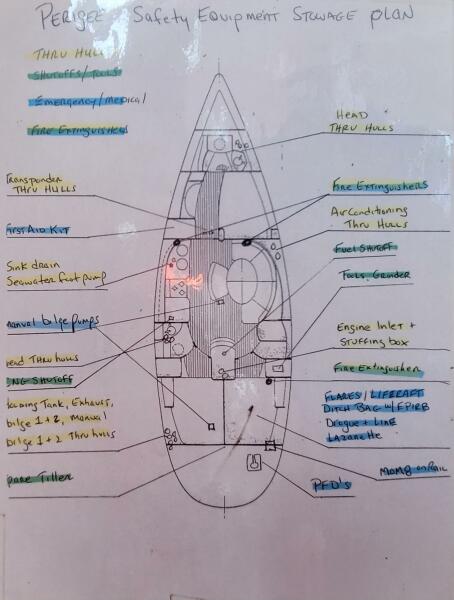 Perigee Safety Equipment Stowage Plan
Thru Hulls
Shutoffs/Tools
Emergency/Medical
Fire Extinguishers
Head
Thru Hulls
Transponder
Thru Hulls
Fire Extinguishers
Air Conditioning
Thru Hulls
First Aid Kit
Fuel Shutoff
Sink drain
Seawater foot pump
Tools, Grinder
manual bilge pumps
Engine Inlet +
Stuffing box
head Thru hulls
Fire Extinguisher
Shutoff
Flares/Liferaft
Ditch Bag w/ EPIRB
Drogue + Line
Lazarette
Tank, Exhaust,
bilge 1+2, manual
bilge 1+2 Thru hulls
MOMB on Rail
pare Tiller
PFD's